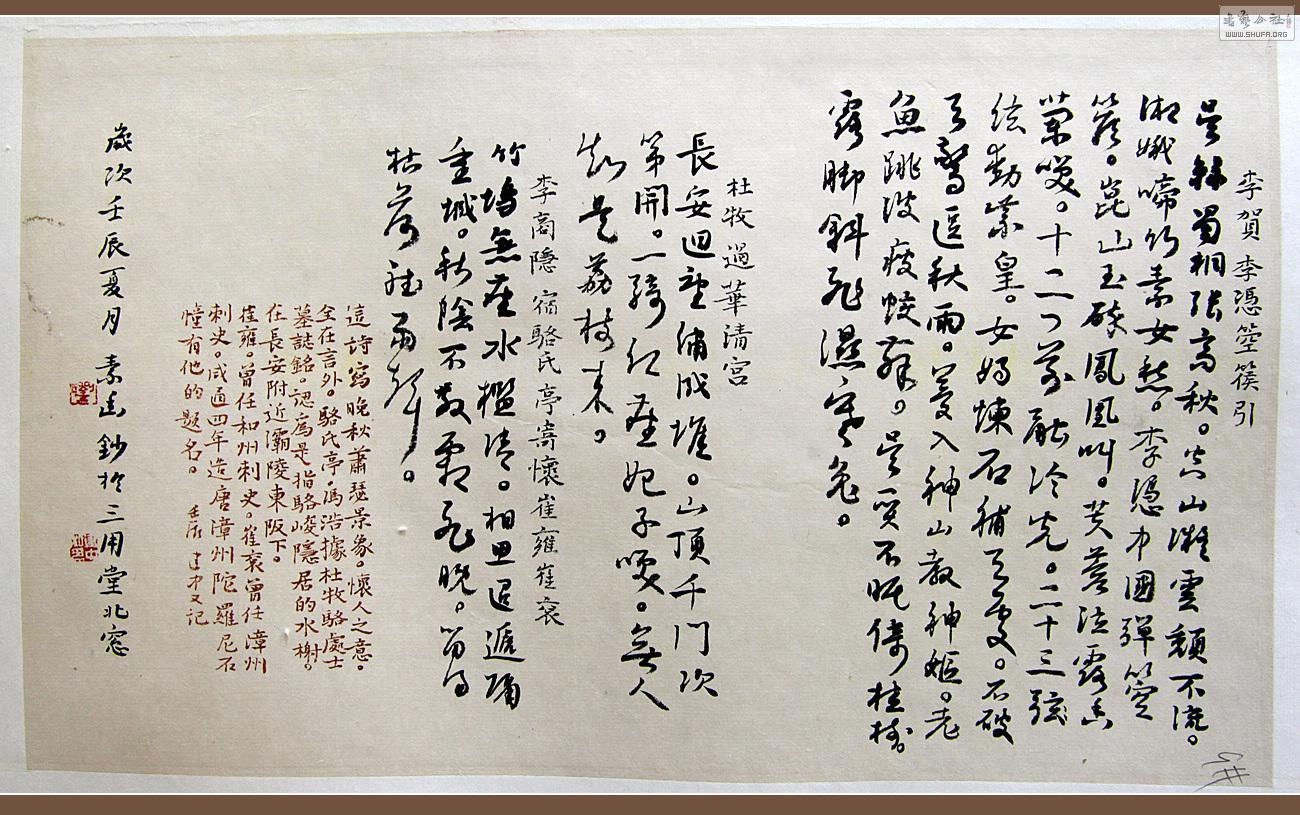 李賀 李憑箜篌引
吳絲蜀桐張高秋。空山凝雲頹不流。
湘娥啼竹素女愁。李憑中國彈箜
篌。崑山玉碎鳳凰叫。芙蓉泣露香
蘭笑。十二門前融冷光。二十三弦
絃動紫皇。女媧煉石補天處。石破
天驚逗秋雨。夢入神山教神嫗。老
魚跳波瘦蛟舞。吳質不眠倚桂樹。
露脚斜飛濕寒兔。
杜牧 過華清宮
長安迴望繡成堆。山頂千門次
第開。一騎紅塵妃子笑。無人
知是荔枝來。
李商隱 宿駱氏亭寄懷崔雍崔袞
竹塢無塵水檻清。相思迢遞隔
重城。秋陰不散霜飛晚。留得
枯荷聽雨聲。
這詩寫晚秋蕭瑟景象。懷人之意。
全在言外。駱氏亭。馮浩據杜牧駱處士
墓誌銘。認爲是指駱峻隱居的水榭。
在長安附近灞陵東阪下。
崔雍。曾任和州刺史。崔袞曾任漳州
刺史。咸通四年造唐漳州陀羅尼石
幢有他的題名。 壬辰 建中又记
歲次壬辰夏月 素玄鈔於三用堂北窓
書藝公社
WWW.SHUFA.ORG